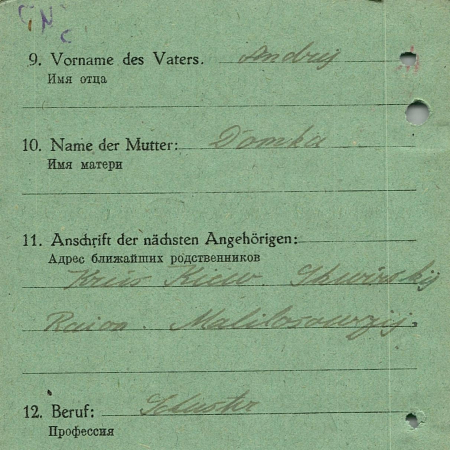 9. Vorname des Vaters. Andrij
Имя отца
10. Name der Mutter: Domka
Имя матери
11. Anschrift der nächsten Angehörigen:
Адрес ближайших родственников
Kreis Kiew.
Raion.
12. Beruf: Schuster
Профессия